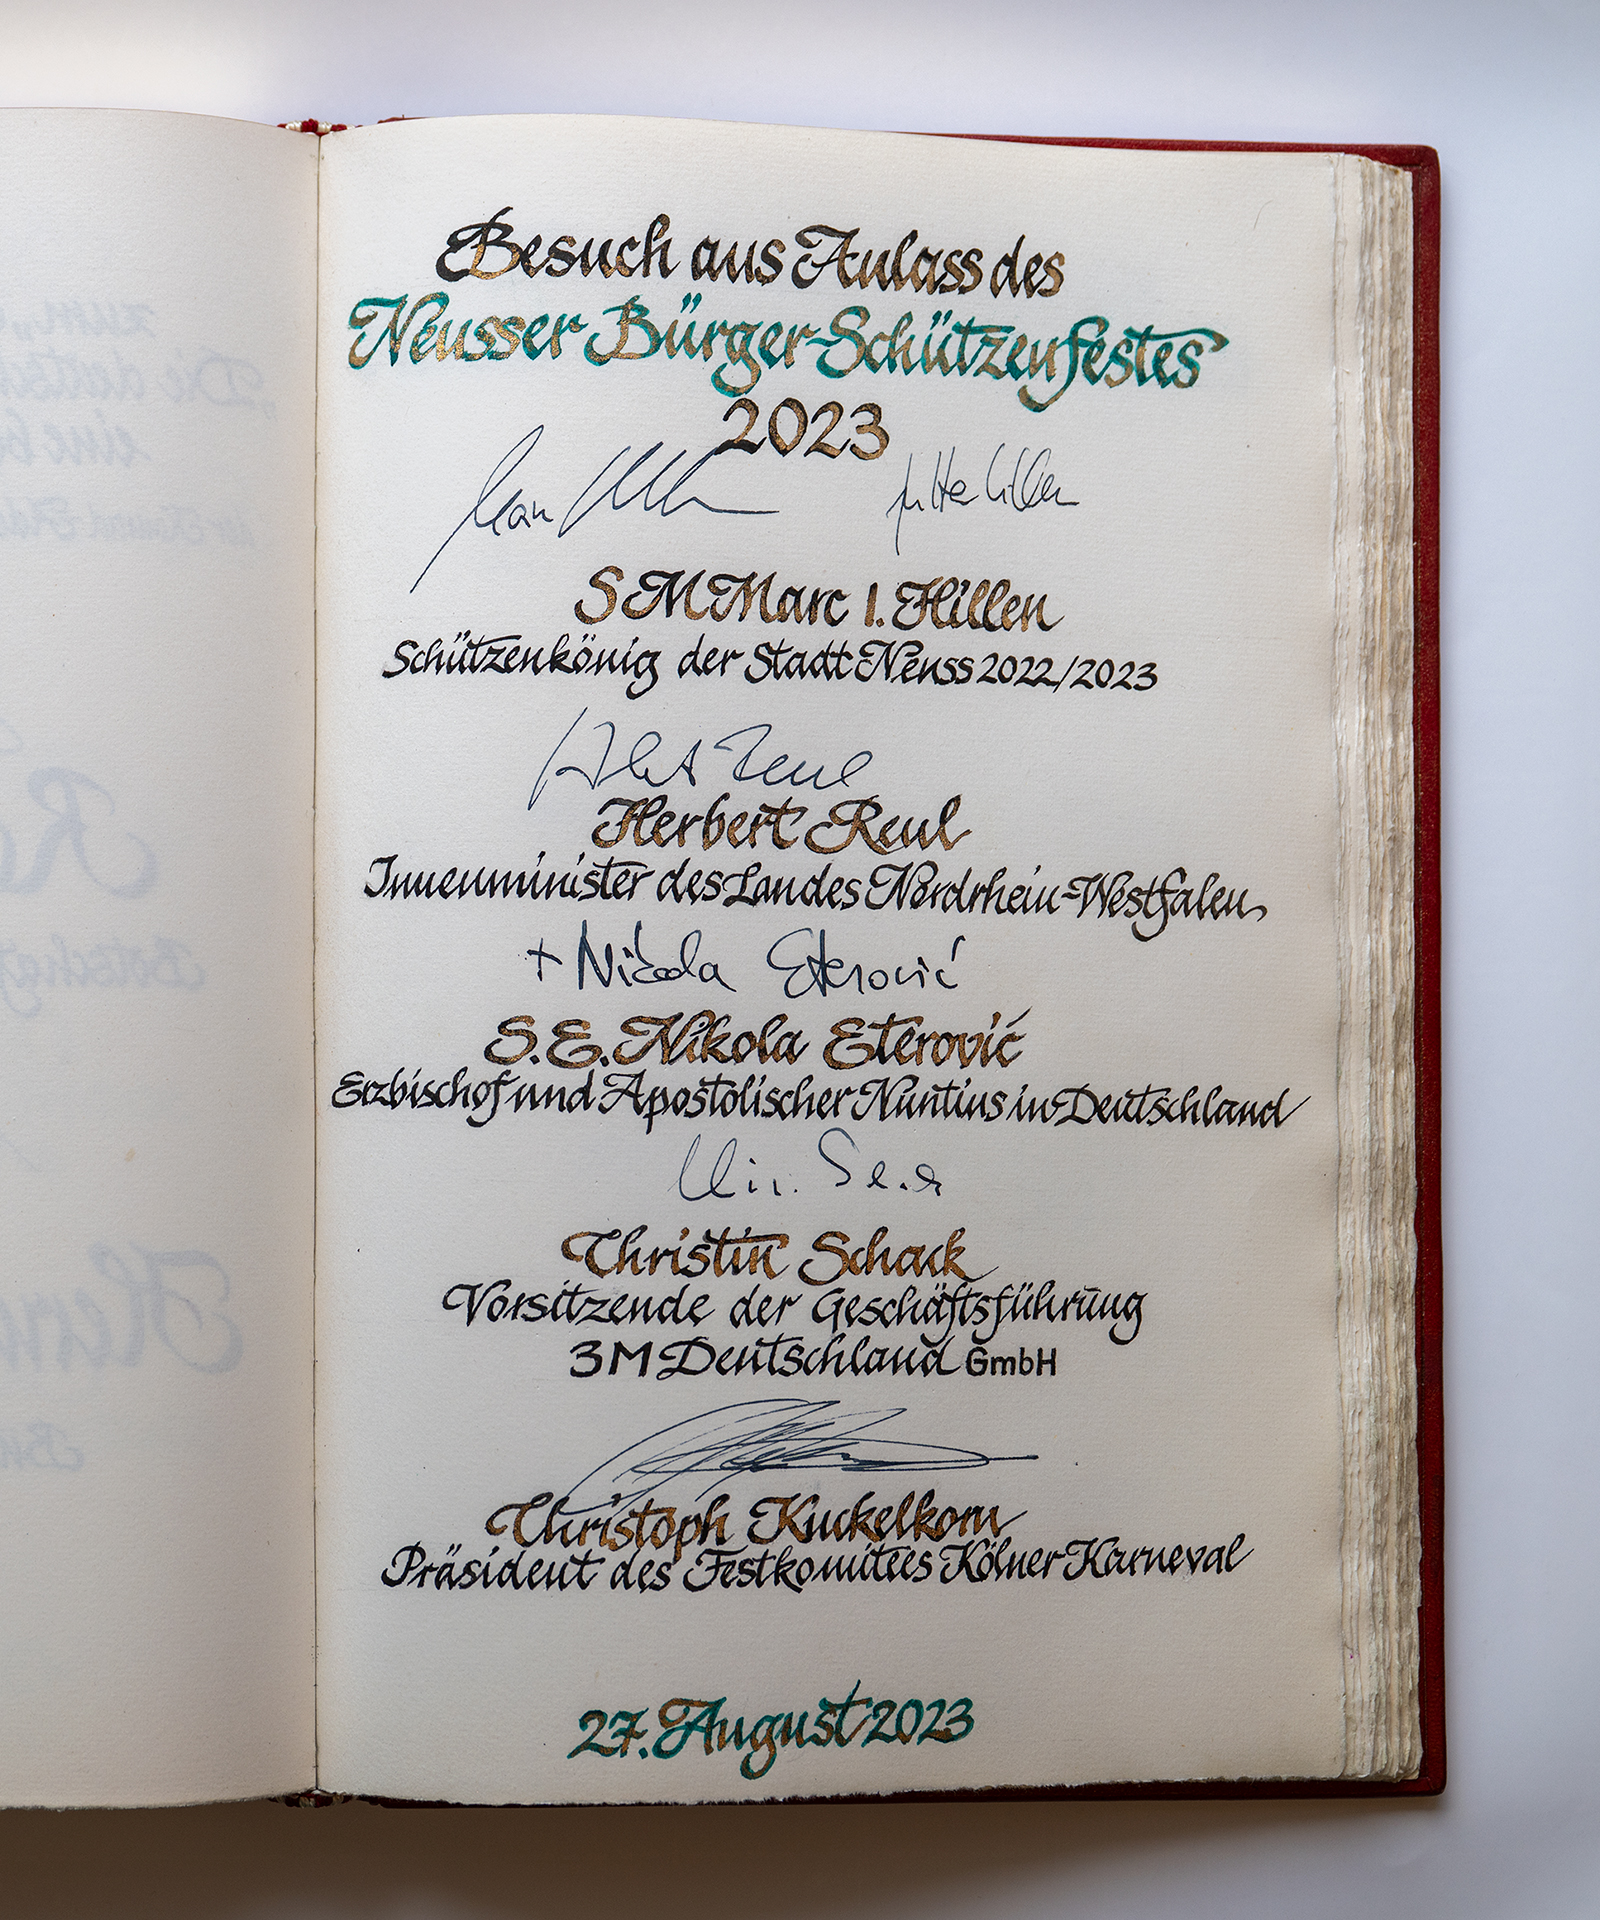 Besuch aus Anlass des
Neusser Bürger-Schützenfestes
2023
Jutta Hillen
S M Marc I. Hillen
Schützenkönig der Stadt Neuss 2022/2023
Herbert Reul
Herbert Reul
Innenminister des Landes Nordrhein-Westfalen
+ Nikola Eterović
S. E. Nikola Eterović
Erzbischof und Apostolischer Nuntius in Deutschland
Christin Schack
Vorsitzende der Geschäftsführung
3M Deutschland GmbH
Christoph Kuckelkorn
Präsident des Festkomitees Kölner Karneval
27. August 2023